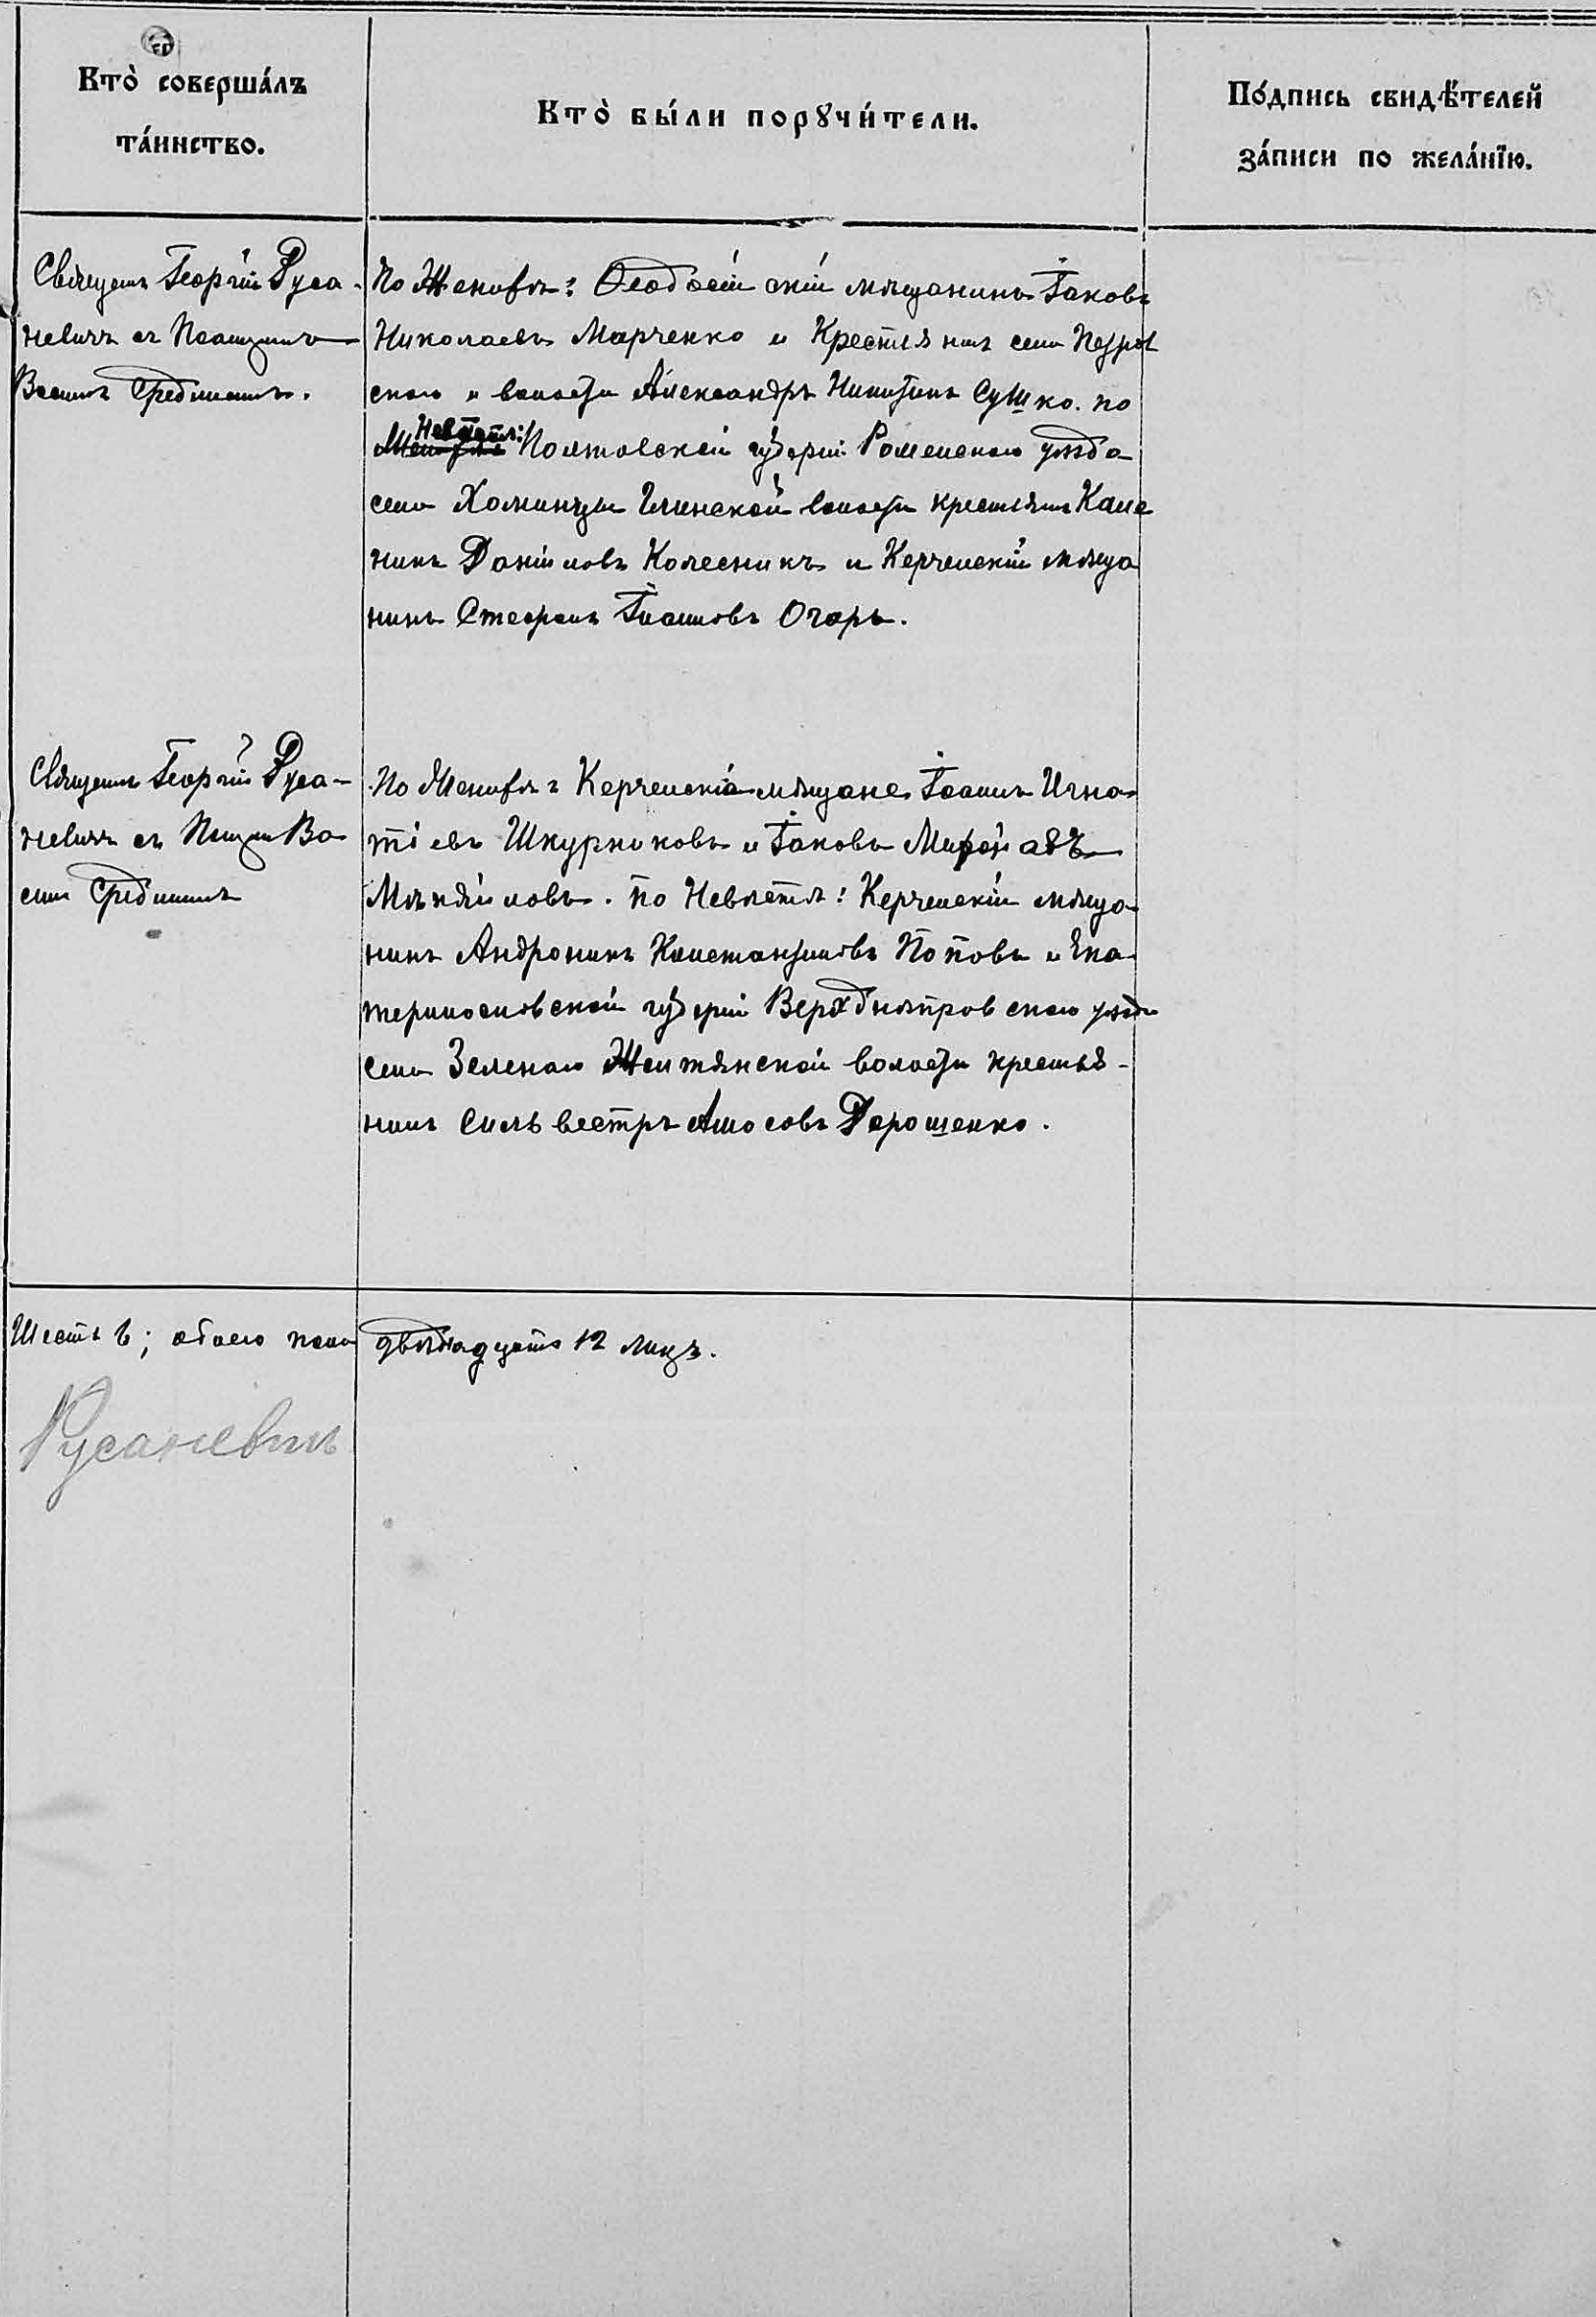 Кто̀ соверша́лъ
та́инство.
Кто̀ бы́ли порꙋчи́тели.
По́дпись свидѣ́телей
за́писи по жела́нїю.
Священ Георгій Руса-
невичъ съ Псаломщ
Васил Средин
По Женихѣ: Ѳеодосійскій мѣщанинъ Іаковъ
Николаевъ Марченко и Крестьянинъ села Петров
скаго и волости Александръ Никитинъ Сушко. по
Невѣстѣ: Полтавской губерніи Роменскаго уѣзда
села Хоминцы Глинской волости крестьянинъ Кале
никъ Даніиловъ Колесникъ и Керченскій мѣща
нинъ Стефанъ Іоанновъ Огарь.
Священ Георгій Руса-
невичъ съ Псалом Ва
силі Средин
По Женихѣ: Керченскіе мѣщане Іоаннъ Игна-
тіевъ Шкурниковъ и Іаковъ
по Невѣстѣ: Керченскій мѣща-
нинъ Андроникъ Константиновъ Поповъ и Ека-
теринославской губерніи Верхднѣпровскаго уѣзда
села Зеленаго Желтянской волости крестья-
нинъ Сильвестръ Амосовъ Дорошенко.
Шесть 6; обоего пола двѣнадцать 12 лицъ.
Русаневичъ